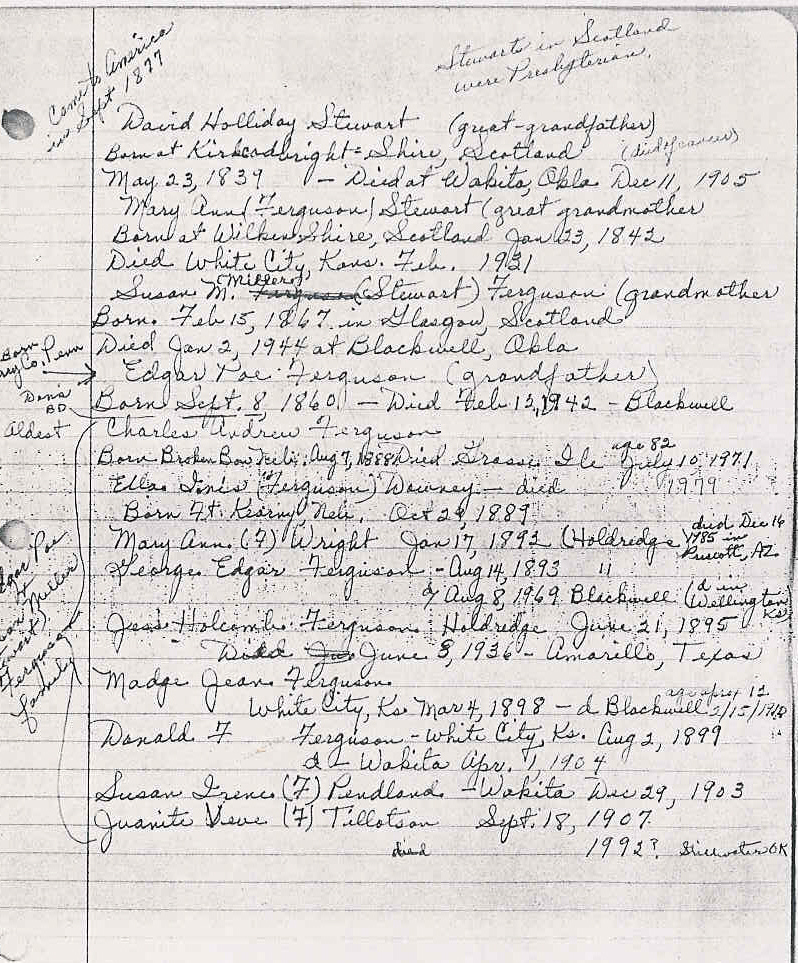 Came to America
in Sept 1877
Stewarts in Scotland
were Presbyterian.
David Holliday Stewart (great-grandfather)
Born at Kirkcudbright-Shire, Scotland (died of cancer)
May 23, 1839 - Died at Wakita, Okla Dec 11, 1905
Mary Ann (Ferguson) Stewart (great grandmother
Born at Shire, Scotland Jan 23, 1842
Died White City, Kans. Feb. 1921
Susan M. Miller (Stewart) Ferguson (grandmother
Born. Feb 15, 1867 in Glasgow, Scotland
Died Jan 2, 1944 at Blackwell, Okla
Born
Co, Penn
Edgar Poe Ferguson (grandfather)
BD
Born Sept. 8, 1860 - Died Feb 13, 1942 - Blackwell
Oldest
Charles Andrew Ferguson
Born Broken Bow Neb; Aug 7, 1888 Died Grosse Ile age 82 July 10, 1971
Ella Inis (Ferguson) Downey - died 1979
Born Ft. Kearny Neb, Oct 29, 1889
Mary Ann (F) Wright Jan 17, 1892 (Holdredge died Dec 16
1985 in
Prescott, AZ
George Edgar Ferguson - Aug 14, 1893 "
d Aug 8, 1969 Blackwell (d in
Wellington
Ks)
Jess Holcomb Ferguson Holdredge June 21, 1895
Died June 3, 1936 - Amarillo, Texas
Edgar Poe
+
Susan Miller
(Stewart)
Ferguson
family
Madge Jean Ferguson
White City, Ks. Mar 4, 1898 - d Blackwell 2/15/1910 age aprox 12
Donald F Ferguson - White City, Ks. Aug 2, 1899
d - Wakita Apr. 1, 1904
Susan Irene (F) Pendland - Wakita Dec 29, 1903
Juanita Veve (F) Tillotson Sept. 18, 1907
died 1992? Stillwater OK